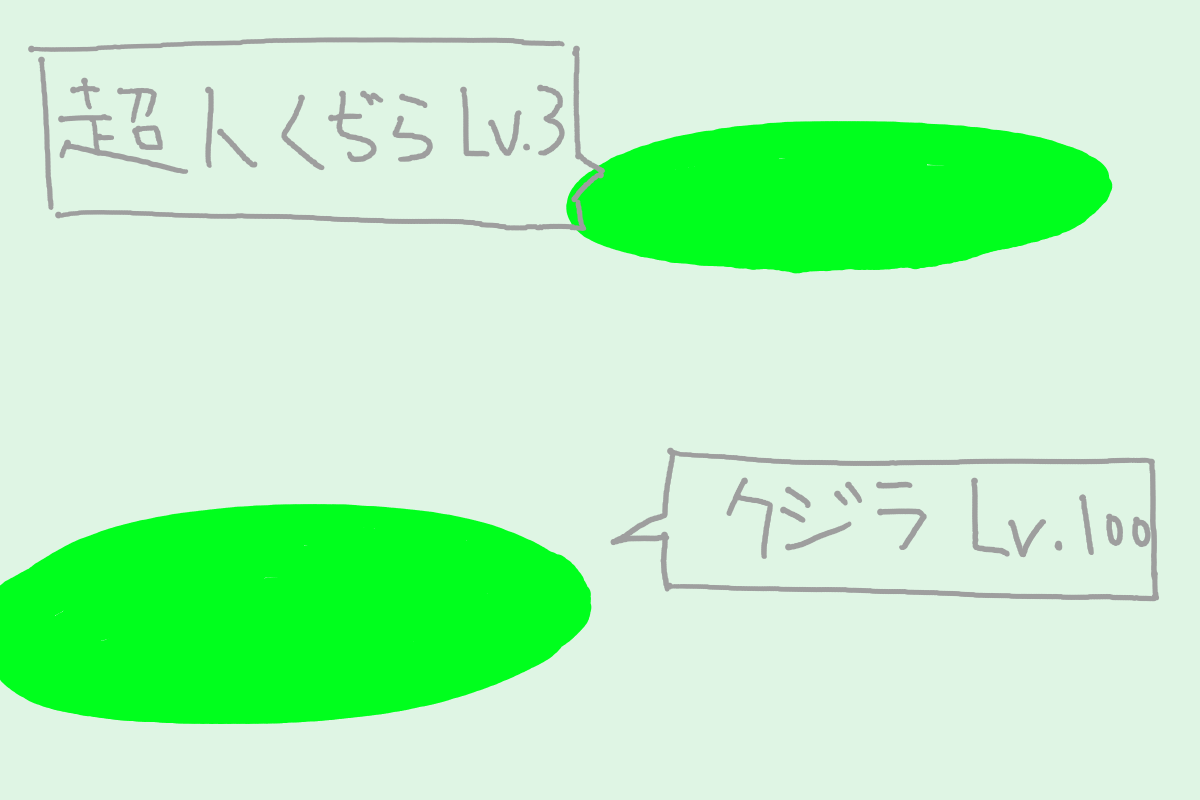 超人くぢら Lv.3
ケジラ Lv.100